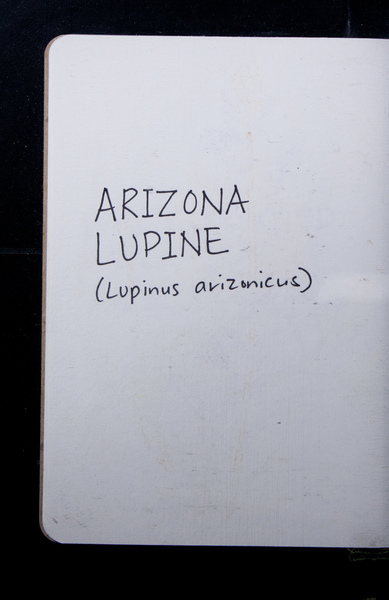 ARIZONA
LUPINE
(Lupinus arizonicus)